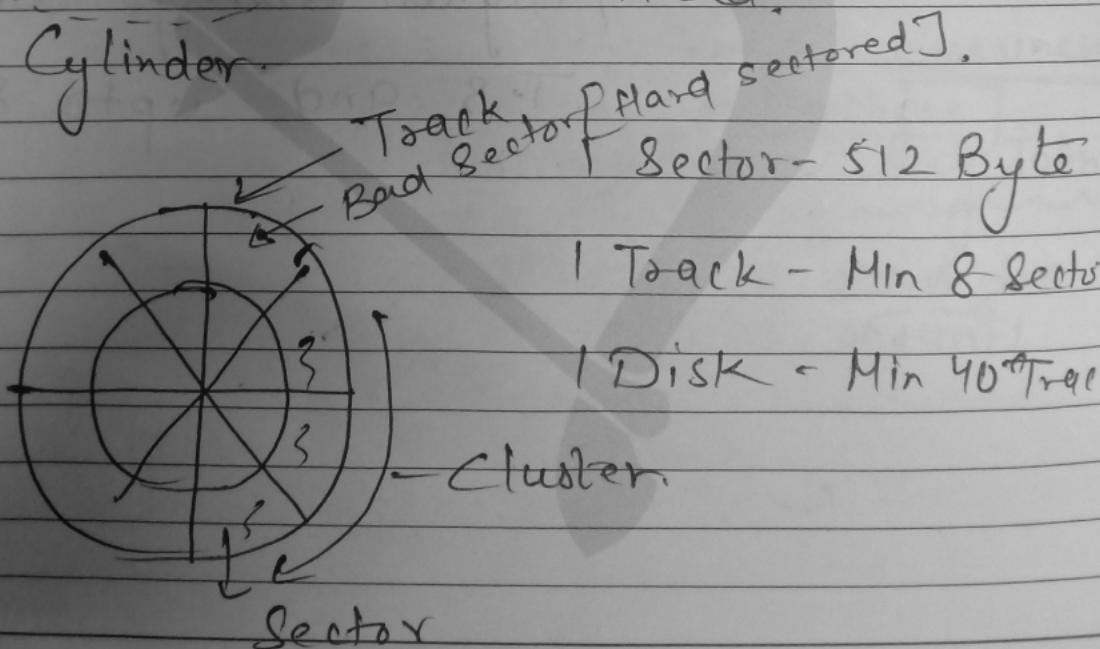 Cylinder.
Track
Bad Sector [Hard sectored].
1 Sector - 512 Byte
1 Track - Min 8 Secto
1 Disk - Min 40 Trac
3
3
3
Cluster.
Sector